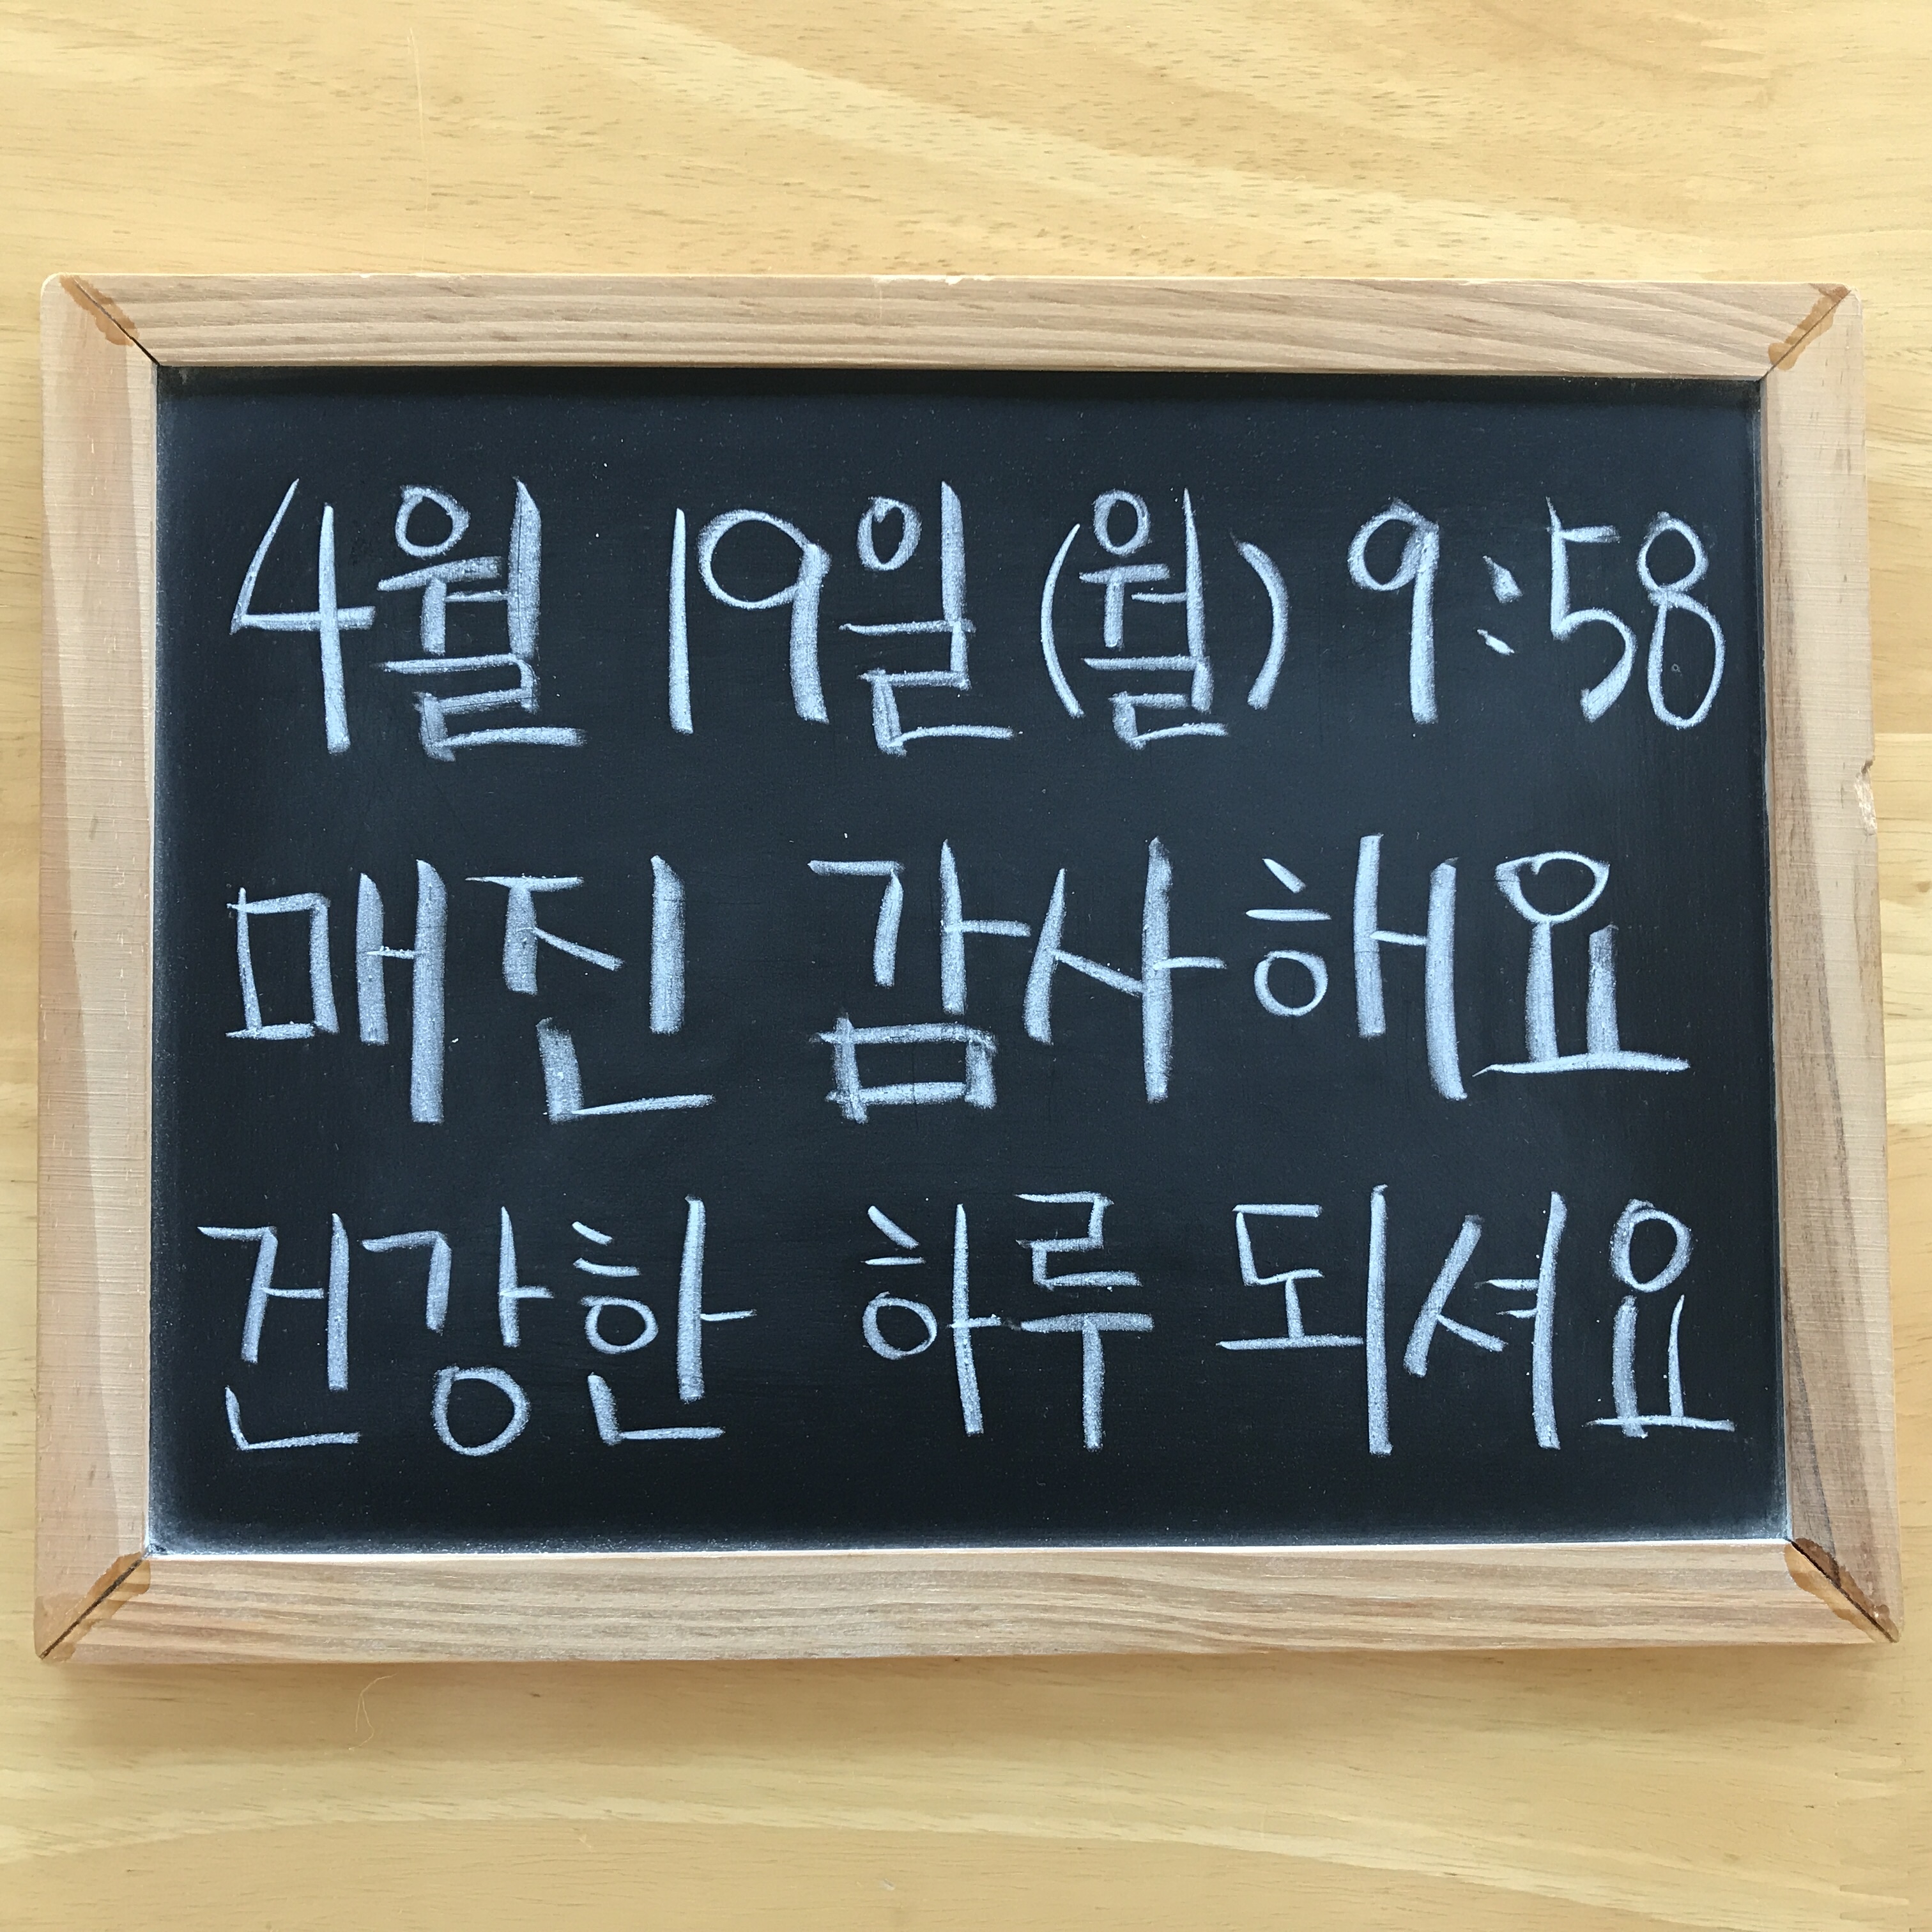 4월 19일 (월) 9:58
매진 감사해요
건강한 하루 되셔요